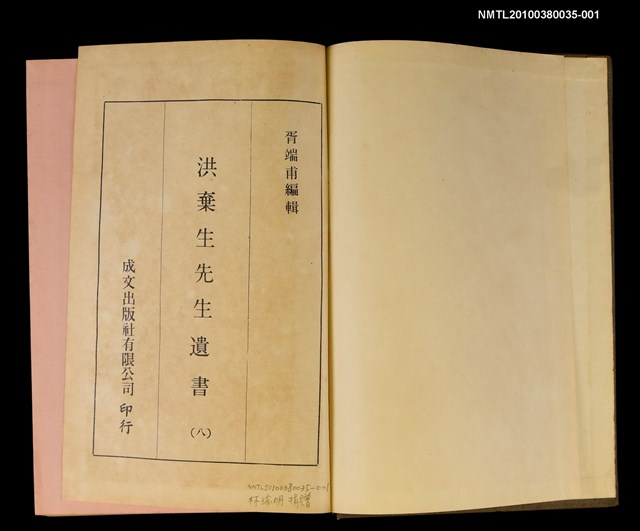 NMTL20100380035-001
胥端甫編輯
洪棄生先生遺書
（八）
成文出版社有限公司印行
NMTL20100380035-001
林瑞明 捐贈